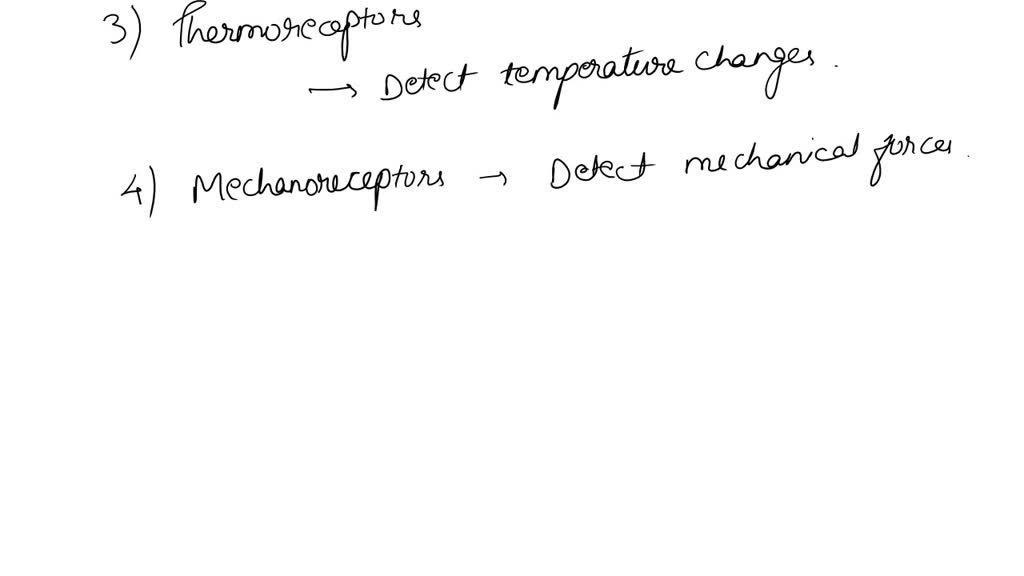 3) Thermoreceptors
→ Detect temperature changes.
4) Mechanoreceptors → Detect mechanical forces.